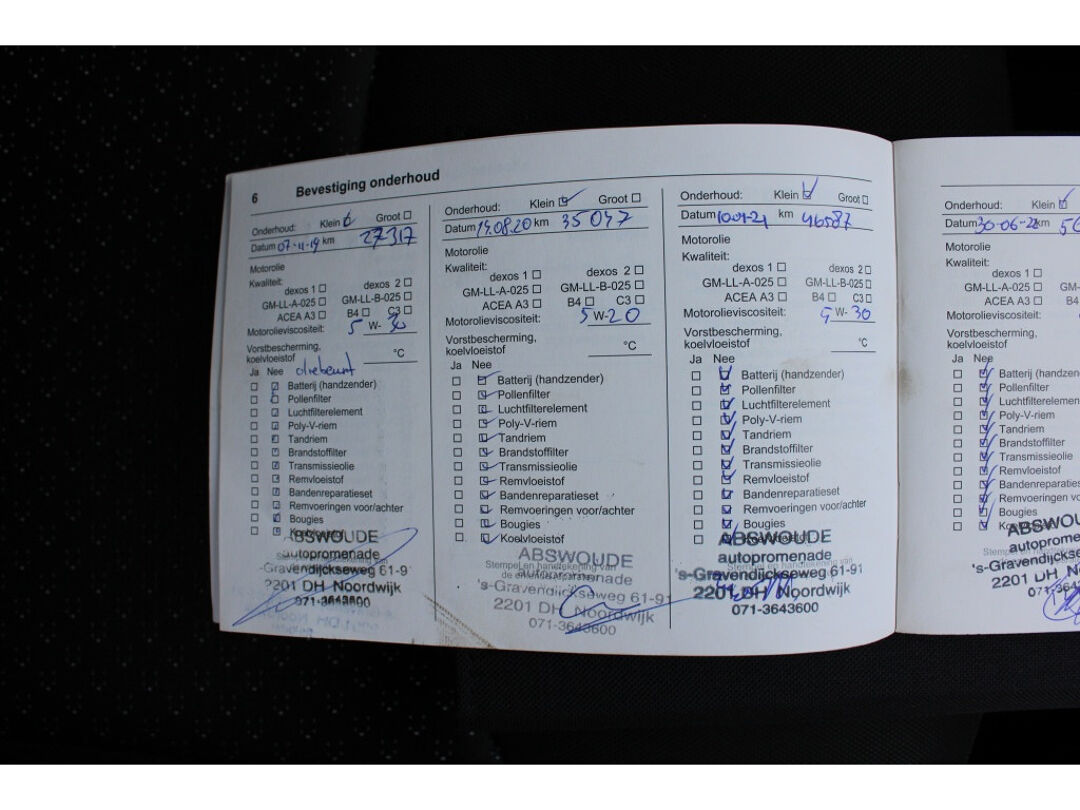 6 Bevestiging onderhoud
Onderhoud: Klein Groot
Datum 07-11-19 km 27317
Motorolie
Kwaliteit:
dexos 1 dexos 2
GM-LL-A-025 GM-LL-B-025
ACEA A3 B4 C3
Motorolieviscositeit: 5 W- 30
Vorstbescherming,
koelvloeistof °C
Ja Nee oliebeurt
Batterij (handzender)
Pollenfilter
Luchtfilterelement
Poly-V-riem
Tandriem
Brandstoffilter
Transmissieolie
Remvloeistof
Bandenreparatieset
Remvoeringen voor/achter
Bougies
Koelvloeistof
ABSWOUDE
autopromenade
-Gravendijckseweg 61-9
2201 DH Noordwijk
071-3643600
Onderhoud: Klein Groot
Datum 19.08.20 km 35047
Motorolie
Kwaliteit:
dexos 1 dexos 2
GM-LL-A-025 GM-LL-B-025
ACEA A3 B4 C3
Motorolieviscositeit: 5 W-20
Vorstbescherming,
koelvloeistof °C
Ja Nee
Batterij (handzender)
Pollenfilter
Luchtfilterelement
Poly-V-riem
Tandriem
Brandstoffilter
Transmissieolie
Remvloeistof
Bandenreparatieset
Remvoeringen voor/achter
Bougies
Koelvloeistof
ABSWOUDE
Stempel en handtekening van
autopromenade
's-Gravendijckseweg 61-91
2201 DH Noordwijk
071-3643600
Onderhoud: Klein Groot
Datum km 46587
Motorolie
Kwaliteit:
dexos 1 dexos 2
GM-LL-A-025 GM-LL-B-025
ACEA A3 B4 C3
Motorolieviscositeit: 5 W- 30
Vorstbescherming,
koelvloeistof °C
Ja Nee
Batterij (handzender)
Pollenfilter
Luchtfilterelement
Poly-V-riem
Tandriem
Brandstoffilter
Transmissieolie
Remvloeistof
Bandenreparatieset
Remvoeringen voor/achter
Bougies
ABSWOUDE
autopromenade
's-Gravendijckseweg 61-91
2201 DH Noordwijk
071-3643600
Onderhoud: Klein
Datum 30-06-22 km
Motorolie
Kwaliteit:
dexos 1
GM-LL-A-025 GM-
ACEA A3 B4
Motorolieviscositeit:
Vorstbescherming,
koelvloeistof
Ja Nee
Batterij (handzen
Pollenfilter
Luchtfilterelemen
Poly-V-riem
Tandriem
Brandstoffilter
Transmissieolie
Remvloeistof
Bandenreparaties
Remvoeringen vo
Bougies
ABSWOU
autoprome
's-Gravendijcks
2201 DH No
071-364